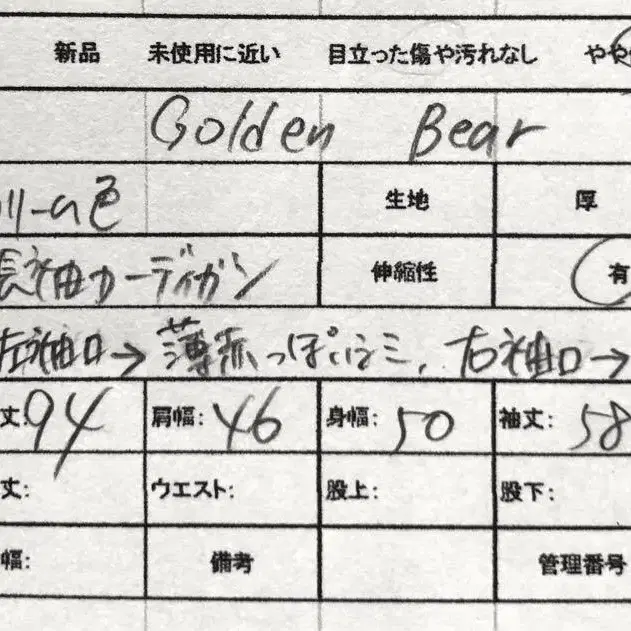 新品 未使用に近い 目立った傷や汚れなし やや
Golden Bear
リーム色 生地 厚
長袖カーディガン 伸縮性 有
左袖口→薄赤っぽいシミ、右袖口→
丈:94 肩幅:46 身幅:50 袖丈:58
丈: ウエスト: 股上: 股下:
幅: 備考 管理番号